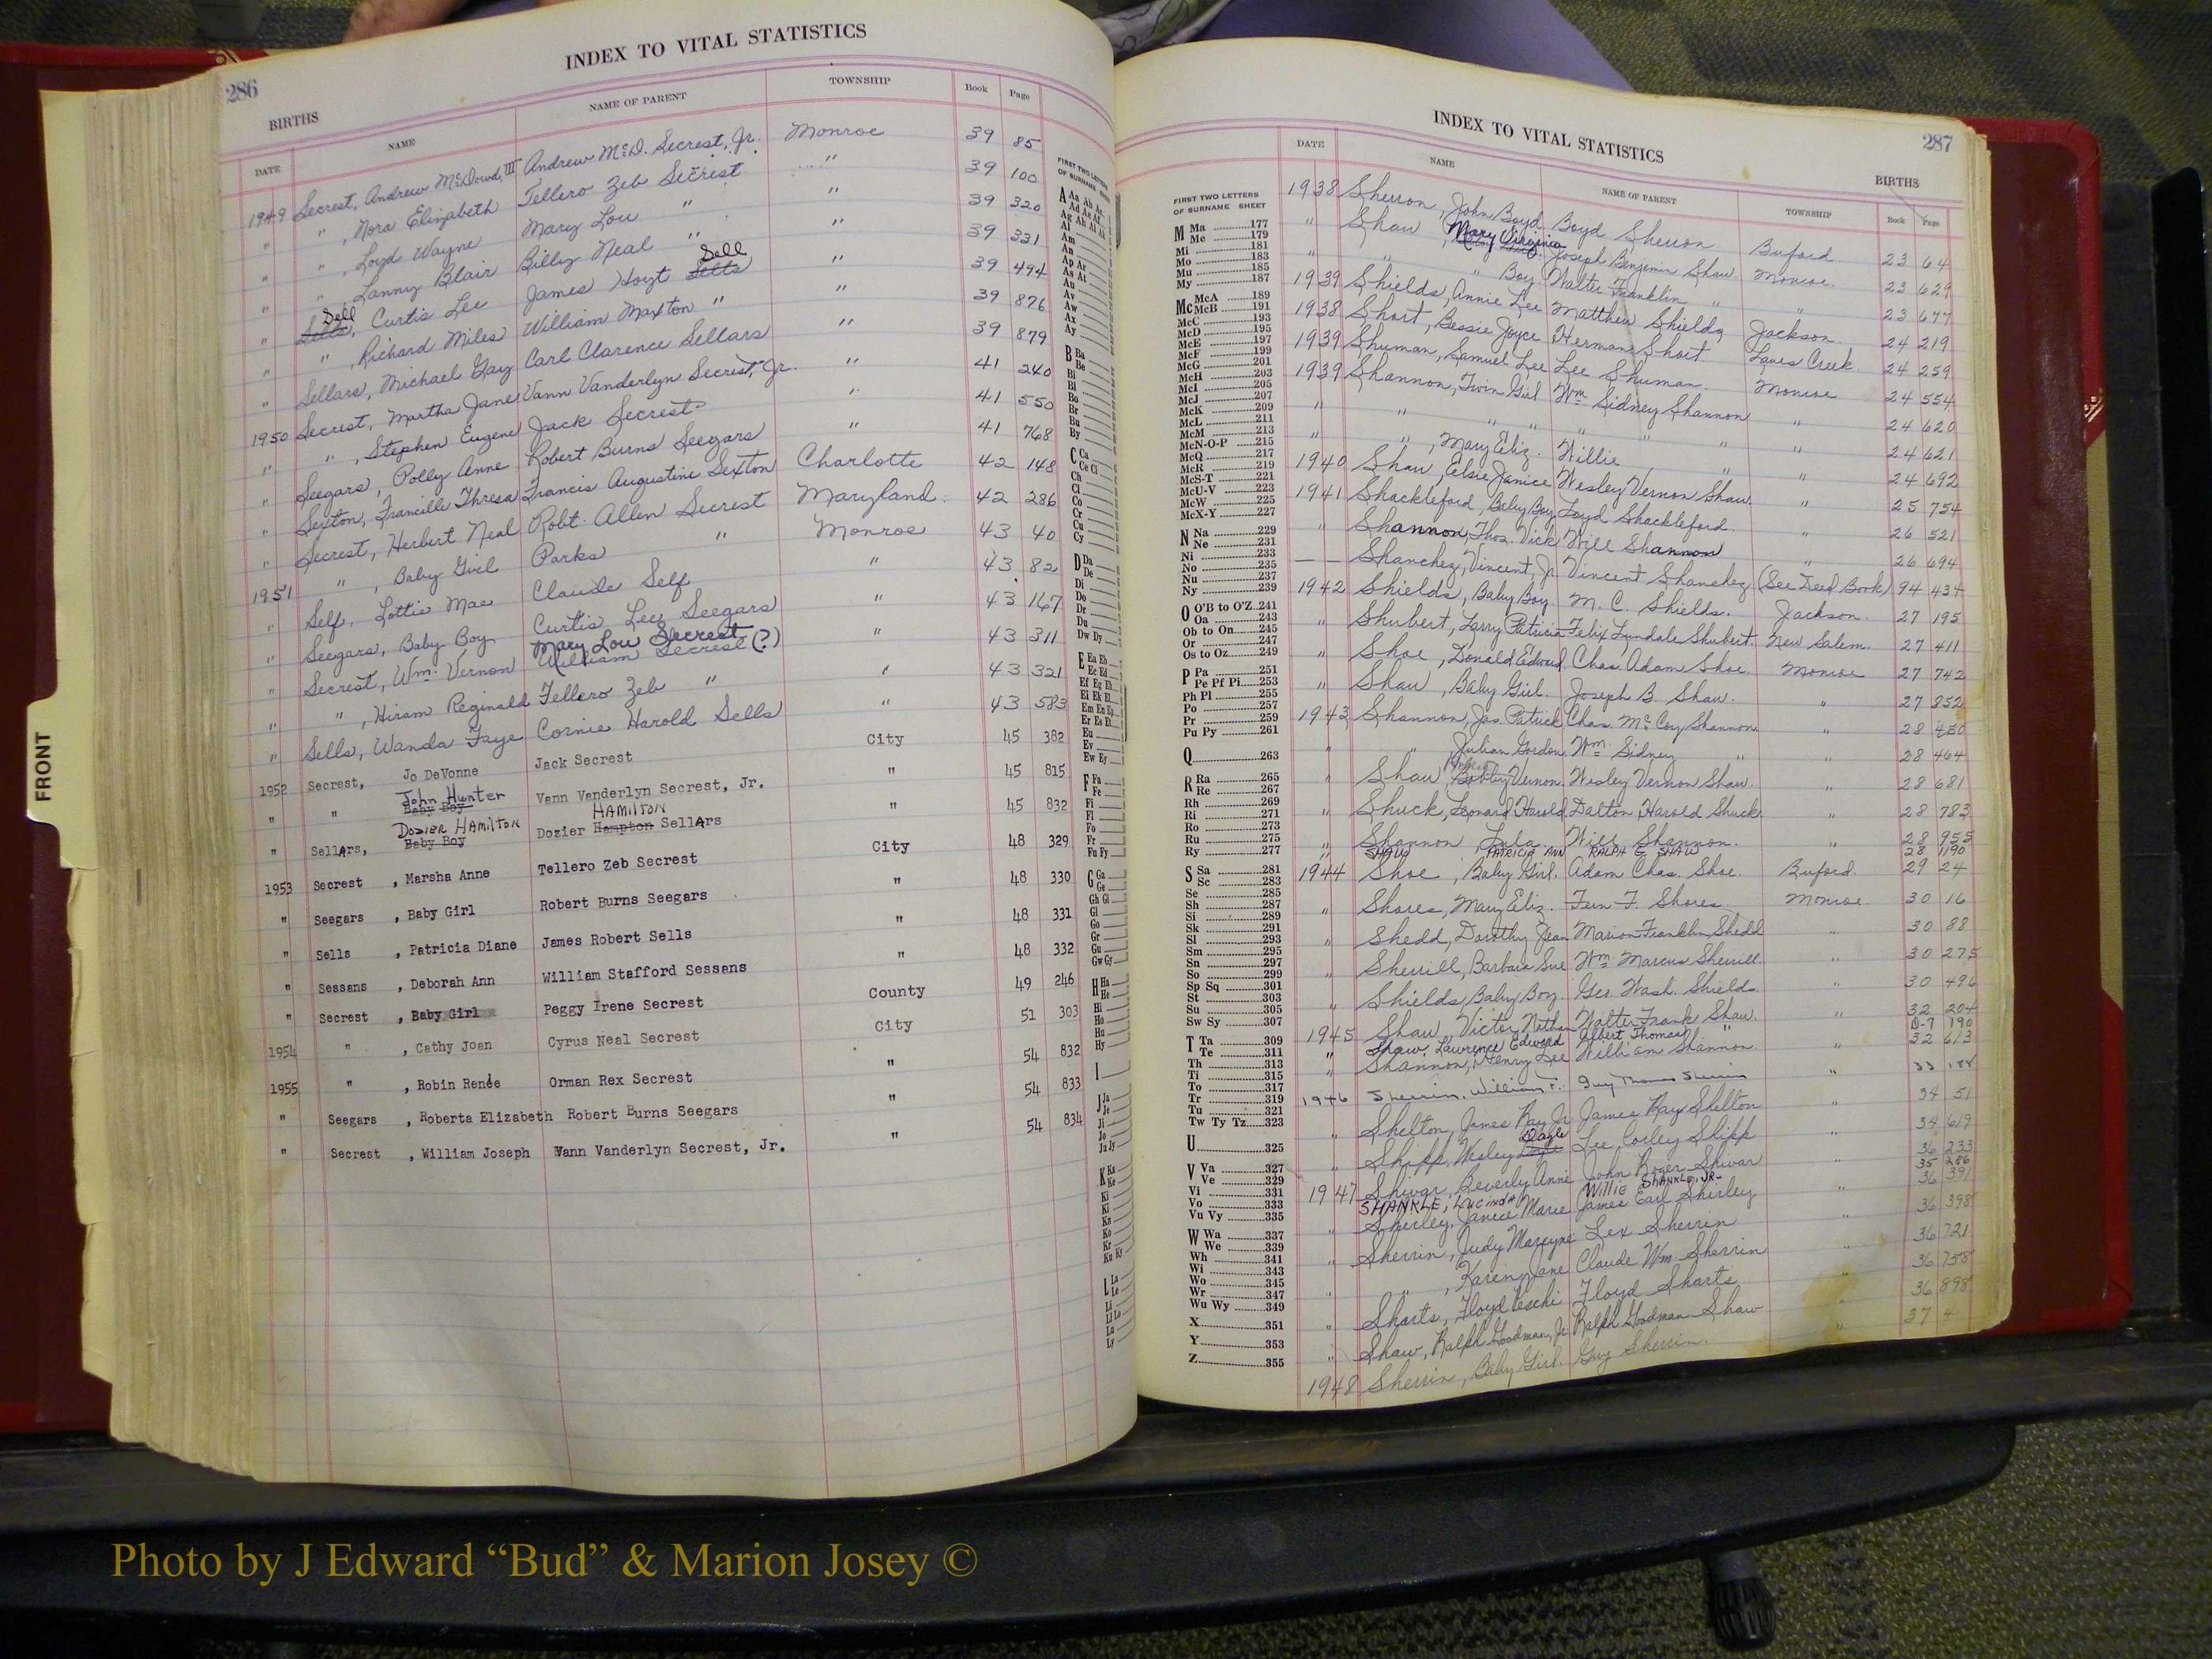 286
INDEX TO VITAL STATISTICS
BIRTHS
DATE NAME NAME OF PARENT TOWNSHIP Book Page
1949 Secrest, Andrew McDowd, III Andrew McD. Secrest, Jr. Monroe 39 85
" " , Nora Elizabeth Tellero Zeb Secrest " 39 100
" " , Loyd Wayne Mary Lou " " 39 320
" " , Lanny Blair Billy Neal " " 39 331
" Sells, Sell Curtis Lee James Hoyt Sells Sell " 39 494
" " , Richard Miles William Maxton " " 39 876
" Sellars, Michael Gay Carl Clarence Sellars " 39 879
1950 Secrest, Martha Jane Vann Vanderlyn Secrest, Jr. " 41 240
" " , Stephen Eugene Jack Secrest " 41 550
" Seegars, Polly Anne Robert Burns Seegars " 41 768
" Sexton, Francille Thresa Francis Augustine Sexton Charlotte 42 148
" Secrest, Herbert Neal Robt. Allen Secrest Maryland 42 286
1951 " , Baby Girl Parks " Monroe 43 40
" Self, Lottie Mae Claude Self " 43 82
" Seegars, Baby Boy Curtis Lee Seegars " 43 167
" Secrest, Wm. Vernon Mary Lou Secrest William Secrest (?) " 43 311
" " , Hiram Reginald Tellero Zeb " " 43 321
" Sells, Wanda Faye Cornie Harold Sells " 43 583
1952 Secrest, Jo DeVonne Jack Secrest City 45 382
" " John Hunter Baby Boy Vann Vanderlyn Secrest, Jr. " 45 815
" Sellars, DOZIER HAMILTON Baby Boy Dozier Hampton HAMILTON Sellars " 45 832
1953 Secrest , Marsha Anne Tellero Zeb Secrest City 48 329
" Seegars , Baby Girl Robert Burns Seegars " 48 330
" Sells , Patricia Diane James Robert Sells " 48 331
" Sessans , Deborah Ann William Stafford Sessans " 48 332
" Secrest , Baby Girl Peggy Irene Secrest County 49 246
1954 " , Cathy Joan Cyrus Neal Secrest City 51 303
1955 " , Robin Renée Orman Rex Secrest " 54 832
" Seegars , Roberta Elizabeth Robert Burns Seegars " 54 833
" Secrest , William Joseph Vann Vanderlyn Secrest, Jr. " 54 834
FRONT
FIRST TWO LETTERS
OF SURNAME
287
INDEX TO VITAL STATISTICS
BIRTHS
DATE NAME NAME OF PARENT TOWNSHIP Book Page
1938 Sherron, John Boyd Boyd Sherron Buford 23 64
" Shaw , Mary Virginia Joseph Benjamin Shaw Monroe 23 629
" " " Boy Walter Franklin " " 23 677
1939 Shields, Annie Lee Matthew Shields Jackson 24 219
1938 Short, Bessie Joyce Herman Short Lanes Creek 24 259
1939 Shuman, Samuel Lee Lee Shuman. Monroe 24 554
1939 Shannon, Twin Girl Wm. Sidney Shannon " 24 620
" " " " " " " " 24 621
" " , Mary Eliz. Willie " " 24 692
1940 Shaw , Elsie Janice Wesley Vernon Shaw. " 25 754
1941 Shackleford, Baby Boy Loyd Shackleford. " 26 521
" Shannon, Thos. Vick Will Shannon " 26 694
— — Shanchez, Vincent, Jr. Vincent Shanchez (See Deed Book) 94 434
1942 Shields, Baby Boy. M. C. Shields. Jackson. 27 195
" Shubert, Larry Patricia Felix Lyndale Shubert. New Salem. 27 411
" Shoe , Donald Edward Chas. Adam Shoe. Monroe 27 742
" Shaw , Baby Girl. Joseph B. Shaw. " 27 852
1943 Shannon, Jas. Patrick Chas. McCoy Shannon " 28 450
" " Julian Gordon Wm. Sidney " " 28 464
" Shaw , Bobby Vernon. Wesley Vernon Shaw. " 28 681
" Shuck, Leonard Harold Dalton Harold Shuck. " 28 783
" Shannon Lula Will Shannon. 28 955
" SHAW , PATRICIA ANN RALPH E. SHAW 28 1190
1944 Shoe , Baby Girl. Adam Chas. Shoe. Buford. 29 24
" Shores, Mary Eliz. Fern F. Shores. Monroe 30 16
" Shedd, Dorothy Jean Marion Franklin Shedd " 30 88
" Sherrill, Barbara Sue Wm. Marcus Sherrill " 30 275
" Shields, Baby Boy. Geo. Wash. Shields. " 30 496
1945 Shaw, Victor Nathan Walter Frank Shaw. " 32 204
" Shaw, Lawrence Edward Albert Thomas " D-7 190
" Shannon, Henry Lee William Shannon. " 32 613
1946 Sherrin, William F. Guy Thomas Sherrin " 33 188
" Shelton, James Ray Jr. James Ray Shelton " 34 51
" Shipp, Wesley Dagle Lee Corley Shipp " 34 619
1947 Shivar, Beverly Anne John Roger Shivar 36 233
SHANKLE, Lucinda Willie SHANKLE, JR. 35 286
" Shirley, Janice Marie James Earl Shirley 36 391
" Sherrin, Judy Marcyne Lex Sherrin " 36 398
" " , Karen Jane Claude Wm. Sherrin " 36 721
" Sharts, Floyd Floyd Sharts " 36 758
" Shaw, Ralph Goodman, Jr. Ralph Goodman Shaw " 36 898
1948 Sherrin, Baby Girl. Guy Sherrin. " 37 4
FIRST TWO LETTERS
OF SURNAME SHEET
M Ma 177
Me 179
Mi 181
Mo 183
Mu 185
My 187
Mc McA 189
McB 191
McC 193
McD 195
McE 197
McF 199
McG 201
McH 203
McI 205
McJ 207
McK 209
McL 211
McM 213
McN-O-P 215
McQ 217
McR 219
McS-T 221
McU-V 223
McW 225
McX-Y 227
N Na 229
Ne 231
Ni 233
No 235
Nu 237
Ny 239
O O'B to O'Z 241
Oa 243
Ob to On 245
Or 247
Os to Oz 249
P Pa 251
Pe Pf Pi 253
Ph Pl 255
Po 257
Pr 259
Pu Py 261
Q 263
R Ra 265
Re 267
Rh 269
Ri 271
Ro 273
Ru 275
Ry 277
S Sa 281
Sc 283
Se 285
Sh 287
Si 289
Sk 291
Sl 293
Sm 295
Sn 297
So 299
Sp Sq 301
St 303
Su 305
Sw Sy 307
T Ta 309
Te 311
Th 313
Ti 315
To 317
Tr 319
Tu 321
Tw Ty Tz 323
U 325
V Va 327
Ve 329
Vi 331
Vo 333
Vu Vy 335
W Wa 337
We 339
Wh 341
Wi 343
Wo 345
Wr 347
Wu Wy 349
X 351
Y 353
Z 355
Photo by J Edward “Bud” & Marion Josey ©